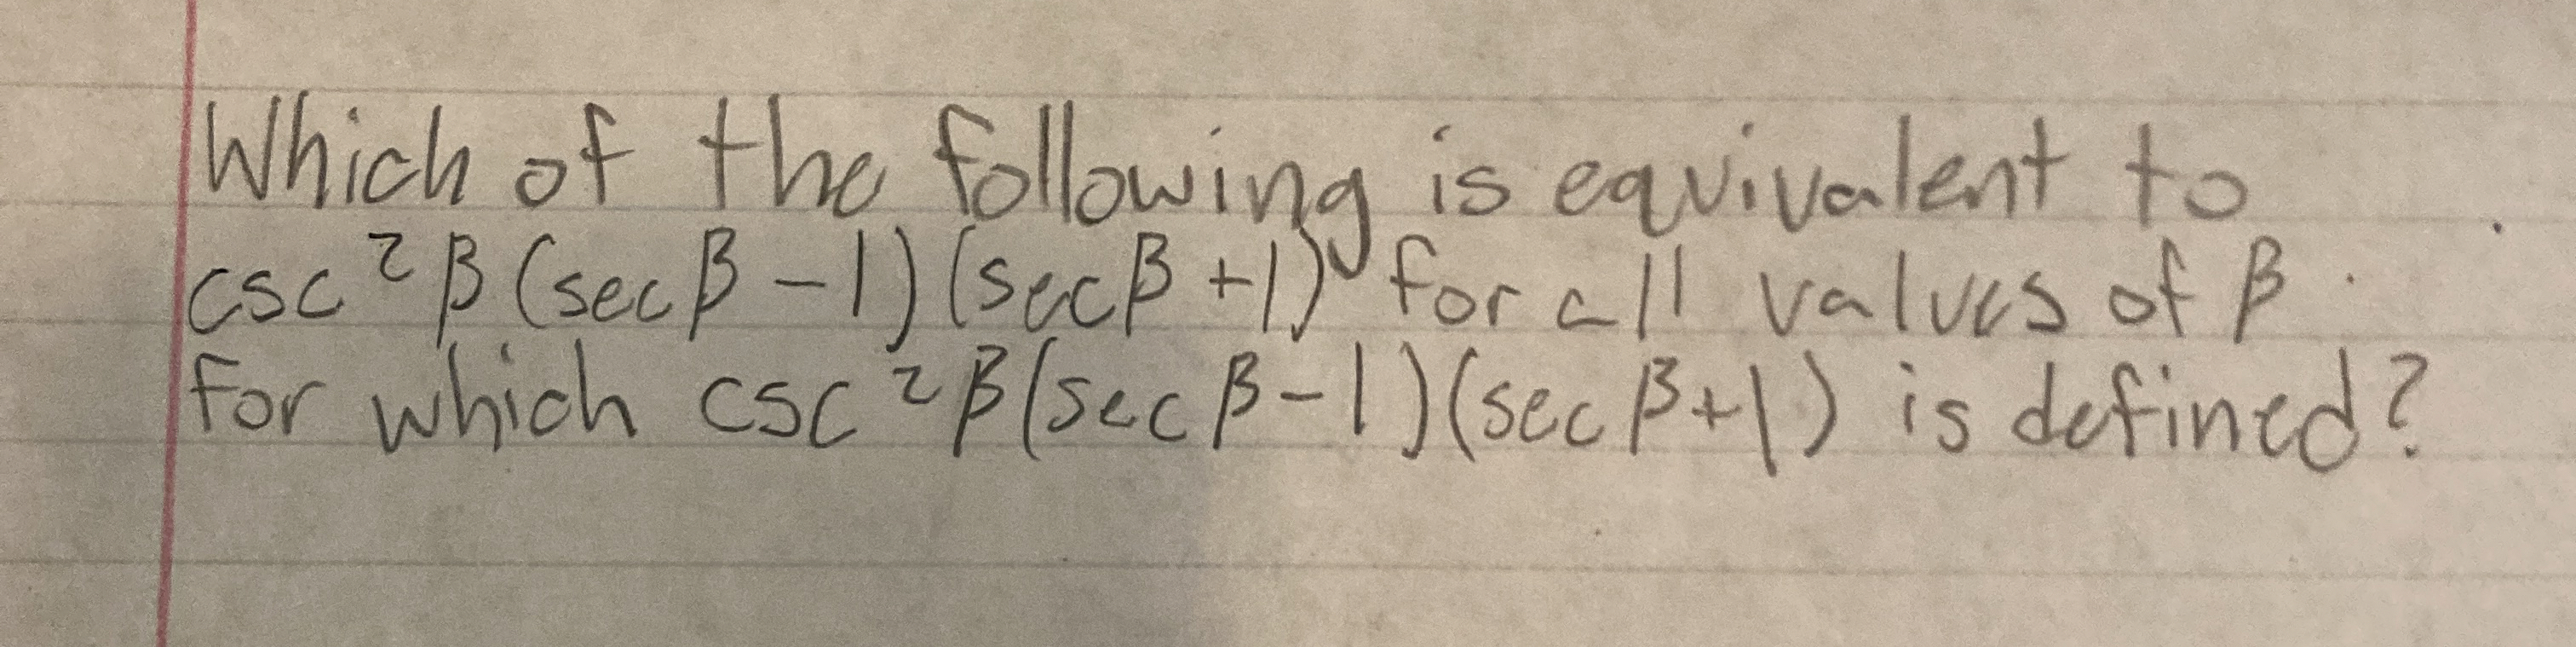 Which of the following is equivalent to
csc²β(secβ-1)(secβ+1) for all values of β
for which csc²β(secβ-1)(secβ+1) is defined?